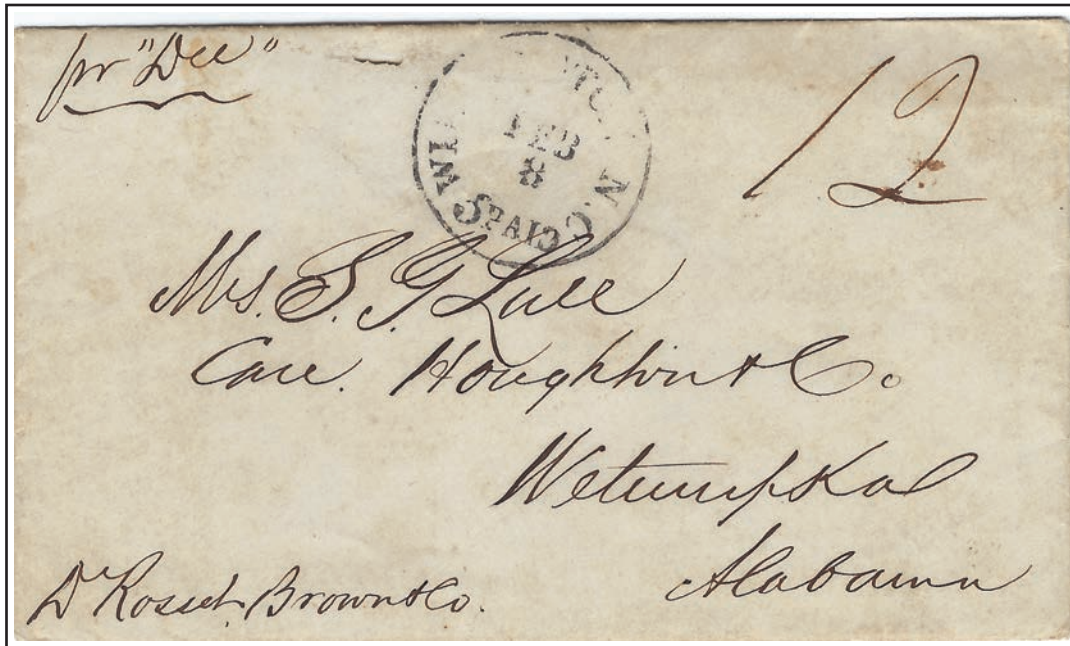 pr "Dee"
WI NGTON N.C.
FEB
8
5 PAID
12
Mrs. S. G. Lull
Care. Houghton & Co.
Wetumpka
Alabama
D Rosset, Brown & Co.